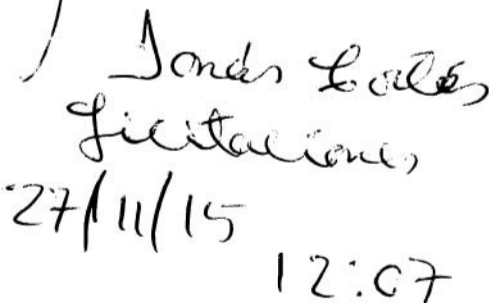 Jonás
Licitaciones
27/11/15
12:07